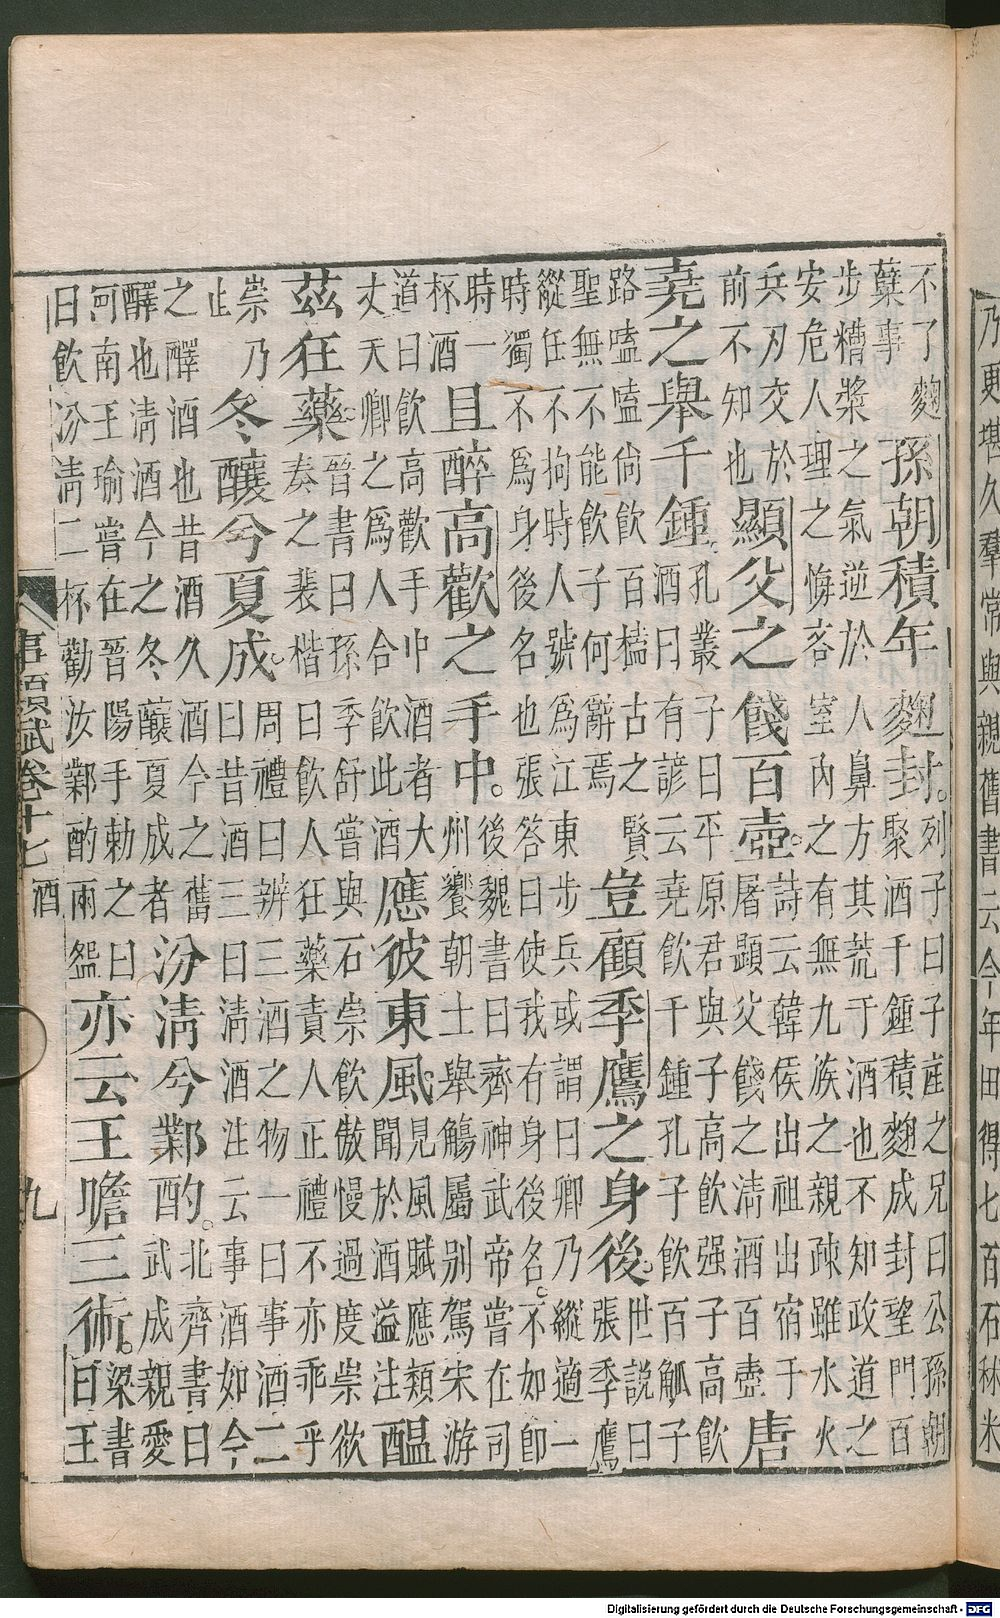 乃更堪久羣常與親舊書云今年田得七百石秫米
不了麴
蘖事
孫朝積年麴封。
列子曰子產之兄曰公孫朝
聚酒千鍾積麴成封望門百
步糟漿之氣逆於人鼻方其荒于酒也不知政道之
安危人理之悔吝室內之有無九族之親疎雖水火
兵刃交於
前不知也
顯父之餞百壺。
詩云韓侯出祖出宿于
屠顯父餞之清酒百壺
唐
堯之舉千鍾。
孔叢子曰平原君與子高飲强子高飲
酒曰有諺云堯飲千鍾孔子飲百觚子
路嗑嗑尙飲百榼古之賢
聖無不能飲子何辭焉
豈顧季鷹之身後。
世說曰
張季鷹
縱任不拘時人號爲江東步兵或謂曰卿乃縱適一
時獨不爲身後名也張答曰使我有身後名。不如卽
時一
杯酒
且醉高歡之手中。
後魏書曰齊神武帝嘗在司
州饗朝士舉觴屬別駕宋游
道曰飲高歡手中酒者大
丈天卿之爲人合飲此酒
應彼東風。
見風賦應類
聞於酒溢注
醖
茲狂藥。
晉書曰孫季舒嘗與石崇飲傲慢過度崇欲
奏之裴楷曰飲人狂藥責人正禮不亦乖乎
崇乃
止
冬釀兮夏成。
周禮曰辨三酒之物一曰事酒二
曰昔酒三曰清酒注云事酒如今
之醳酒也昔酒久酒今之舊
醳也清酒今之冬釀夏成者
汾淸兮鄴酌。
北齊書曰
武成親愛
河南王瑜嘗在晉陽手勅之曰
日飲汾淸二杯勸汝鄴酌兩盌
亦云王瞻三術。
梁書
曰王
事類賦卷十七 酒 九
Digitalisierung gefördert durch die Deutsche Forschungsgemeinschaft - DFG